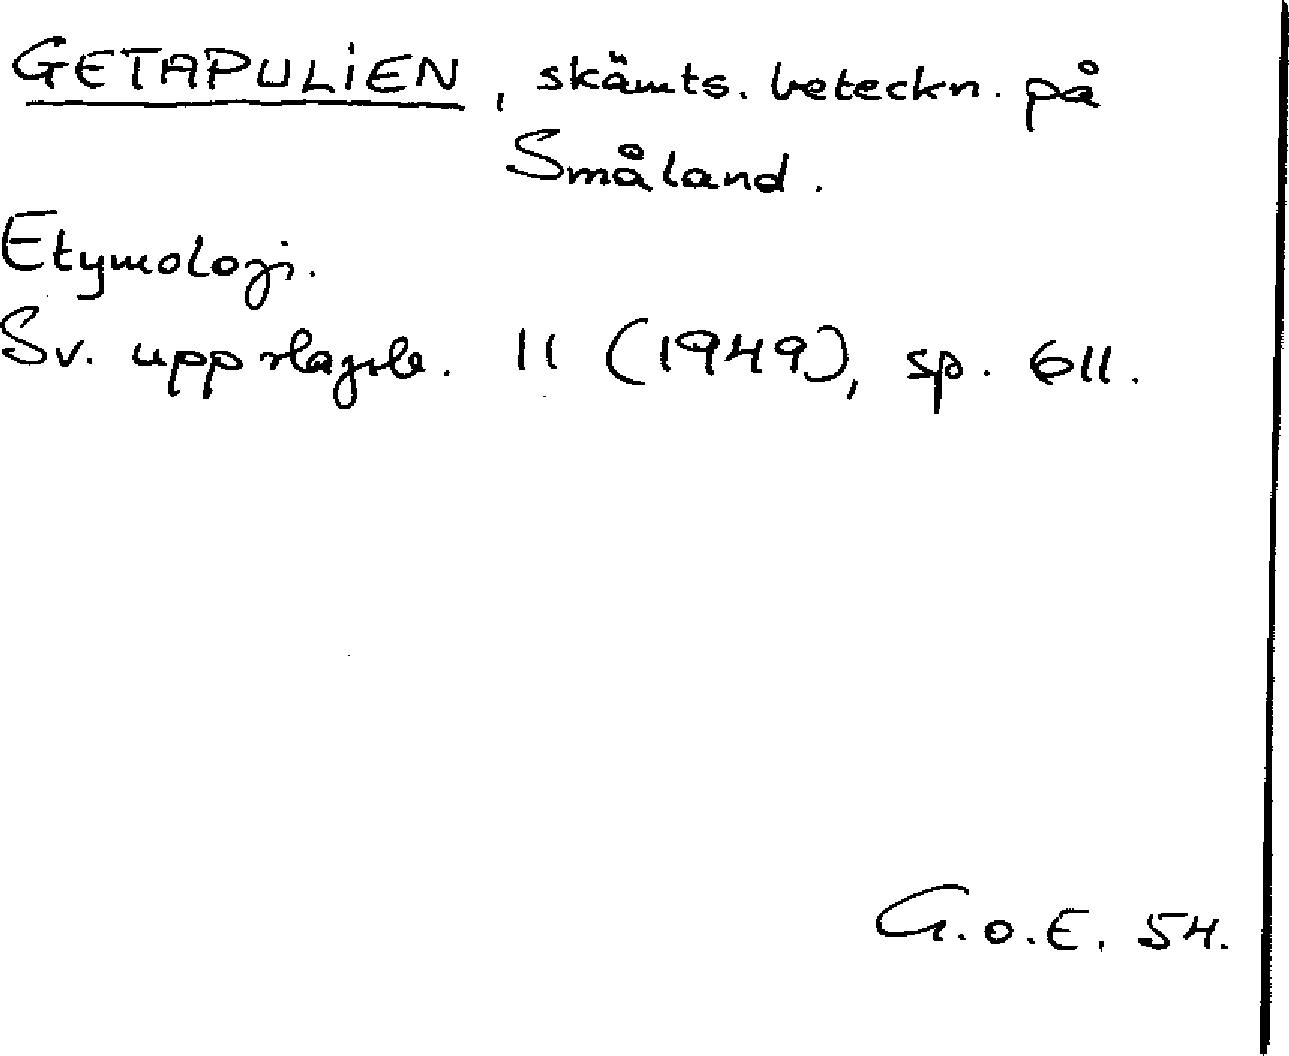 GETAPULIEN, skämts. beteckn. på
Småland.
Etymologi.
Sv. uppslagsb. 11 (1949), sp. 611.
G.o.E. 54.